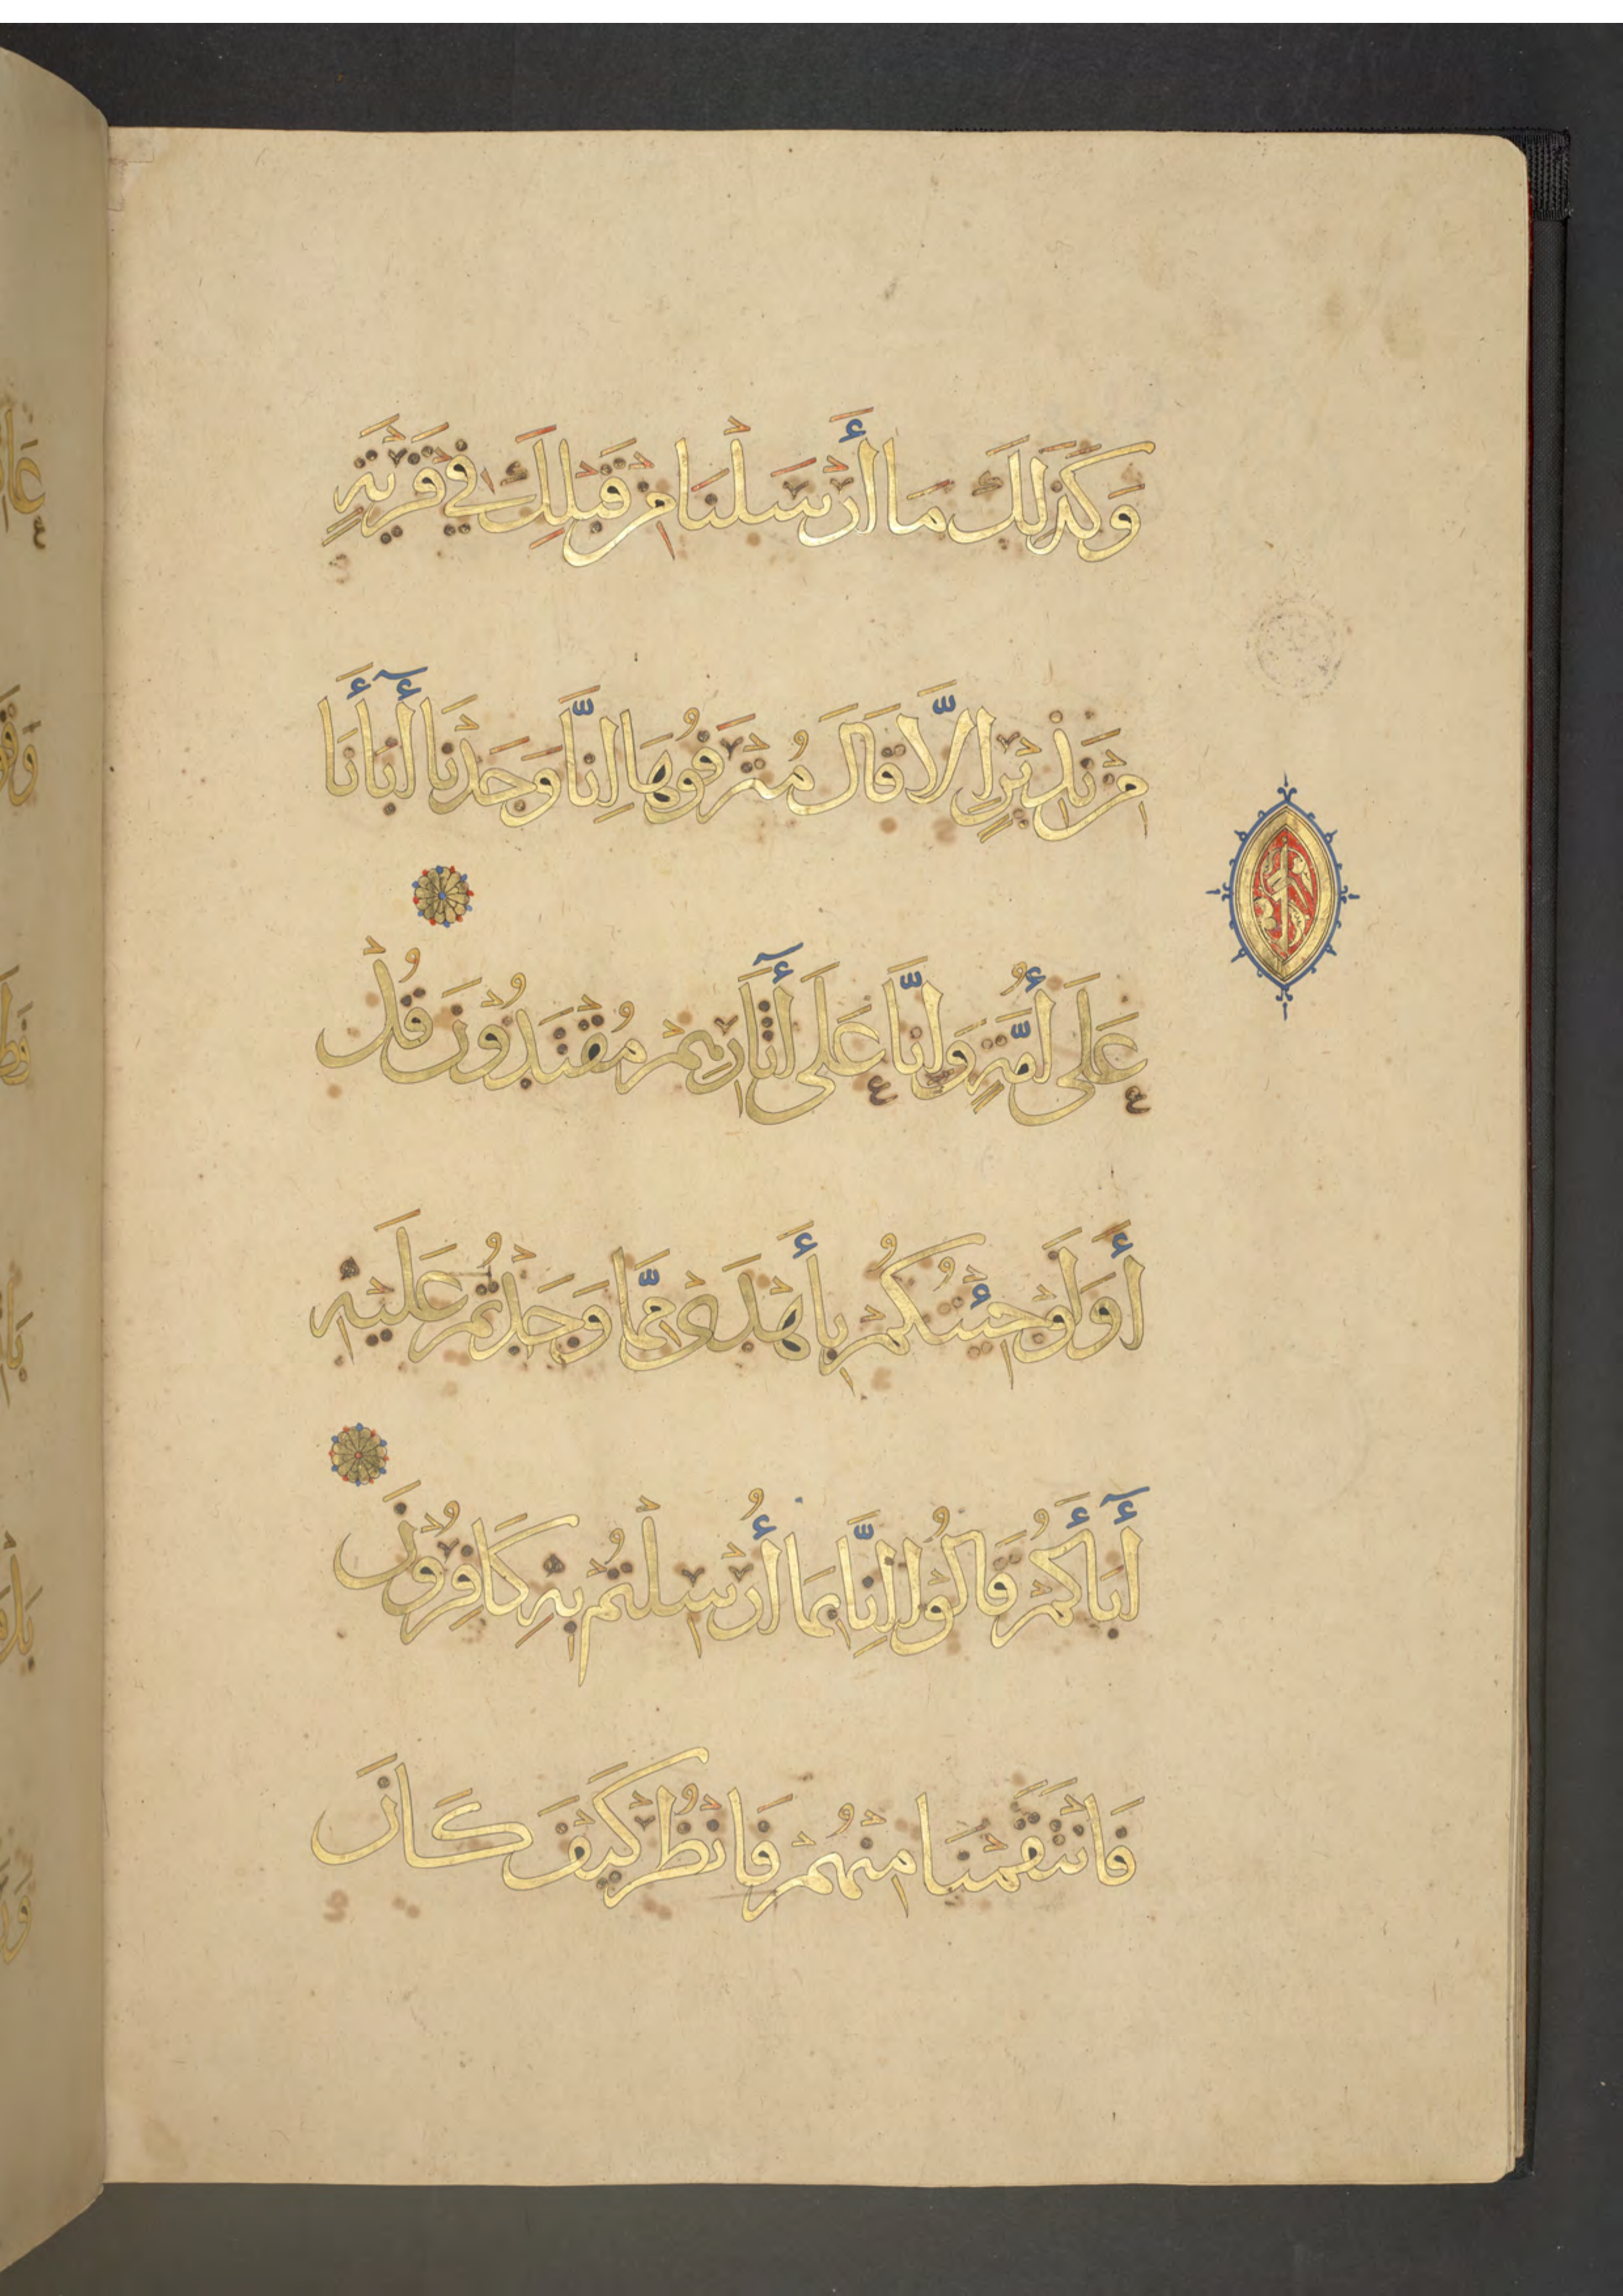 وَكَذَلِكَ مَا أَرْسَلْنَا مِنْ قَبْلِكَ فِي قَرْيَةٍ
مِنْ نَذِيْرٍ اِلَّا قَالَ مُتْرَفُوهَا اِنَّا وَجَدْنَا أَبَآءَنَا
عَلَى أُمَّةٍ وَاِنَّا عَلَى أَثَآرِهِمْ مُقْتَدُوْنَ قُلْ
أَوَلَوْ جِئْتُكُمْ بِأَهْدَى مِمَّا وَجَدْتُمْ عَلَيْهِ
أَبَآءَكُمْ قَالُوْا اِنَّا بِمَا أُرْسِلْتُمْ بِهِ كَافِرُوْنَ
فَانْتَقَمْنَا مِنْهُمْ فَانْظُرْ كَيْفَ كَانَ